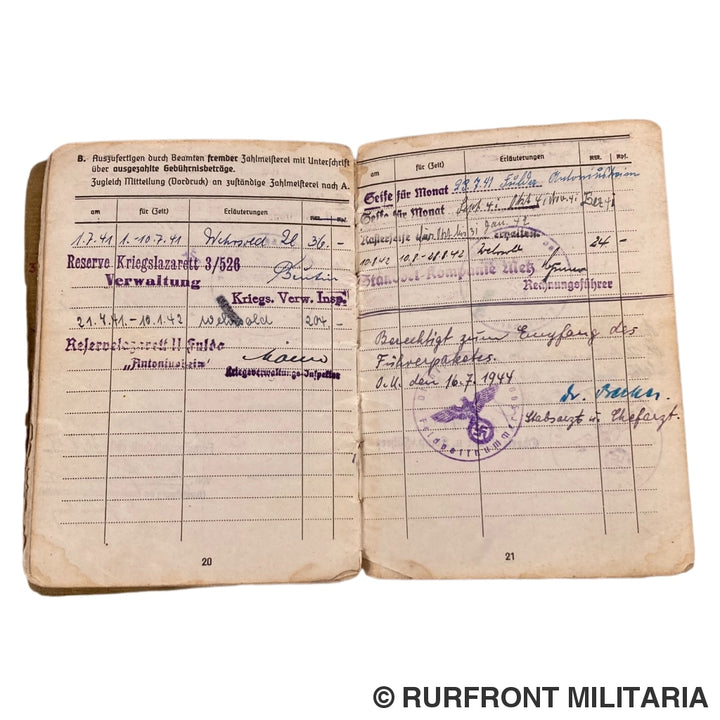 B. Auszufertigen durch Beamten fremder Zahlmeisterei mit Unterschrift
über ausgezahlte Gebührnisbeträge.
Zugleich Mitteilung (Vordruck) an zuständige Zahlmeisterei nach A.
am für (Zeit) Erläuterungen RM. Rpf.
1.7.41 1.-10.7.41 Wehrsold 36.-
Reserve Kriegslazarett 3/526
Verwaltung
Kriegs. Verw. Insp.
21.7.41.-10.1.42 Wehrsold 204.-
Reservelazarett II Fulda
„Antoniusheim"
Kriegsverwaltungs-Inspektor
20
am für (Zeit) Erläuterungen RM. Rpf.
Seife für Monat 28.7.41 Fulda Antoniusheim
Seife für Monat Sept. 41 Okt. 41 Nov. 41 Dez. 41
Rasierseife bis 31. Jan. 42 erhalten.
10.8.42 10.8.-28.8.42 Wehrsold 24.-
Standort-Kompanie Metz
Rechnungsführer
Berechtigt zum Empfang des
Führerpaketes.
O.U. den 16.7.1944
Dr.
Stabsarzt u. Chefarzt.
Feldpostnummer
21
© RURFRONT MILITARIA